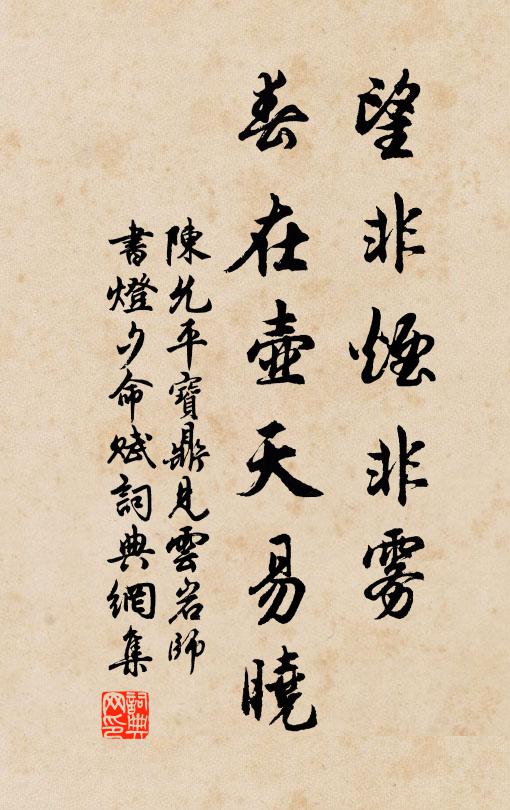 望非煙非雾
春在壺天易曉
陳允平寶鼎見雲岩師
書燈夕命賦詞典網集
詞典
网印